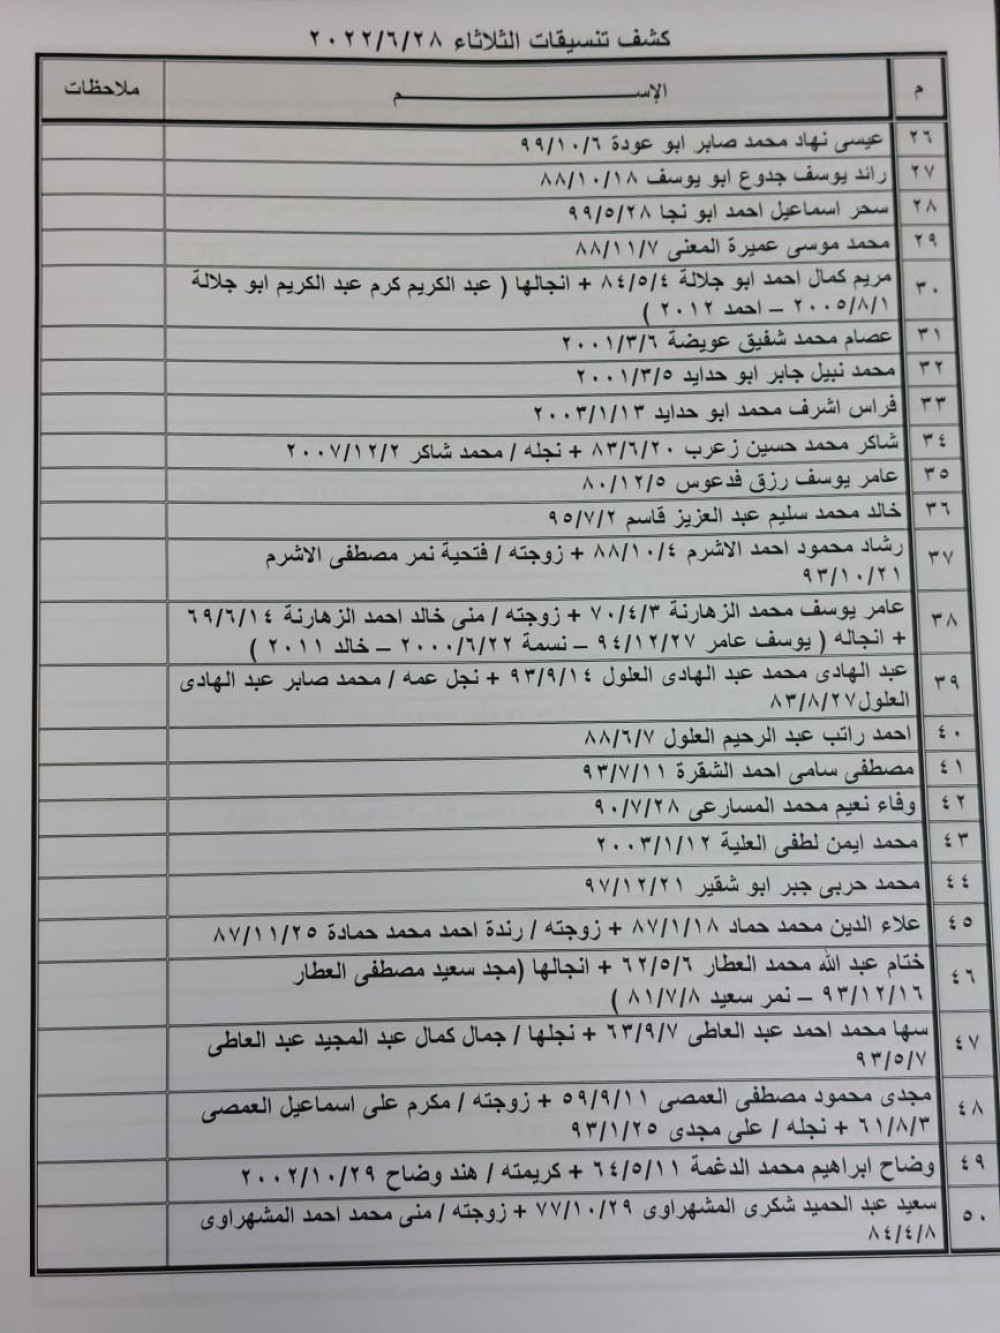 كشف تنسيقات الثلاثاء ٢٠٢٢/٦/٢٨
م الإســـــــــم ملاحظات
٢٦ عيسى نهاد محمد صابر ابو عودة ٩٩/١٠/٦
٢٧ رائد يوسف جدوع ابو يوسف ٨٨/١٠/١٨
٢٨ سحر اسماعيل احمد ابو نجا ٩٩/٥/٢٨
٢٩ محمد موسى عميرة المغنى ٨٨/١١/٧
٣٠ مريم كمال احمد ابو جلالة ٨٤/٥/٤ + انجالها ( عبد الكريم كرم عبد الكريم ابو جلالة
٢٠٠٥/٨/١ – احمد ٢٠١٢ )
٣١ عصام محمد شفيق عويضة ٢٠٠١/٣/٦
٣٢ محمد نبيل جابر ابو حدايد ٢٠٠١/٣/٥
٣٣ فراس اشرف محمد ابو حدايد ٢٠٠٣/١/١٣
٣٤ شاكر محمد حسين زعرب ٨٣/٦/٢٠ + نجله / محمد شاكر ٢٠٠٧/١٢/٢
٣٥ عامر يوسف رزق فدعوس ٨٠/١٢/٥
٣٦ خالد محمد سليم عبد العزيز قاسم ٩٥/٧/٢
٣٧ رشاد محمود احمد الاشرم ٨٨/١٠/٤ + زوجته / فتحية نمر مصطفى الاشرم
٩٣/١٠/٢١
٣٨ عامر يوسف محمد الزهارنة ٧٠/٤/٣ + زوجته / منى خالد احمد الزهارنة ٦٩/٦/١٤
+ انجاله ( يوسف عامر ٩٤/١٢/٢٧ – نسمة ٢٠٠٠/٦/٢٢ – خالد ٢٠١١ )
٣٩ عبد الهادى محمد عبد الهادى العلول ٩٣/٩/١٤ + نجل عمه / محمد صابر عبد الهادى
العلول ٨٣/٨/٢٧
٤٠ احمد راتب عبد الرحيم العلول ٨٨/٦/٧
٤١ مصطفى سامى احمد الشقرة ٩٣/٧/١١
٤٢ وفاء نعيم محمد المسارعى ٩٠/٧/٢٨
٤٣ محمد ايمن لطفى العلية ٢٠٠٣/١/١٢
٤٤ محمد حربى جبر ابو شقير ٩٧/١٢/٢١
٤٥ علاء الدين محمد حماد ٨٧/١/١٨ + زوجته / رندة احمد محمد حمادة ٨٧/١١/٢٥
٤٦ ختام عبد الله محمد العطار ٦٢/٥/٦ + انجالها (مجد سعيد مصطفى العطار
٩٣/١٢/١٦ – نمر سعيد ٨١/٧/٨ )
٤٧ سها محمد احمد عبد العاطى ٦٣/٩/٧ + نجلها / جمال كمال عبد المجيد عبد العاطى
٩٣/٥/٧
٤٨ مجدى محمود مصطفى العمصى ٥٩/٩/١١ + زوجته / مكرم على اسماعيل العمصى
٦١/٨/٣ + نجله / على مجدى ٩٣/١/٢٥
٤٩ وضاح ابراهيم محمد الدغمة ٦٤/٥/١١ + كريمته / هند وضاح ٢٠٠٢/١٠/٢٩
٥٠ سعيد عبد الحميد شكرى المشهراوى ٧٧/١٠/٢٩ + زوجته / منى محمد احمد المشهراوى
٨٤/٤/٨